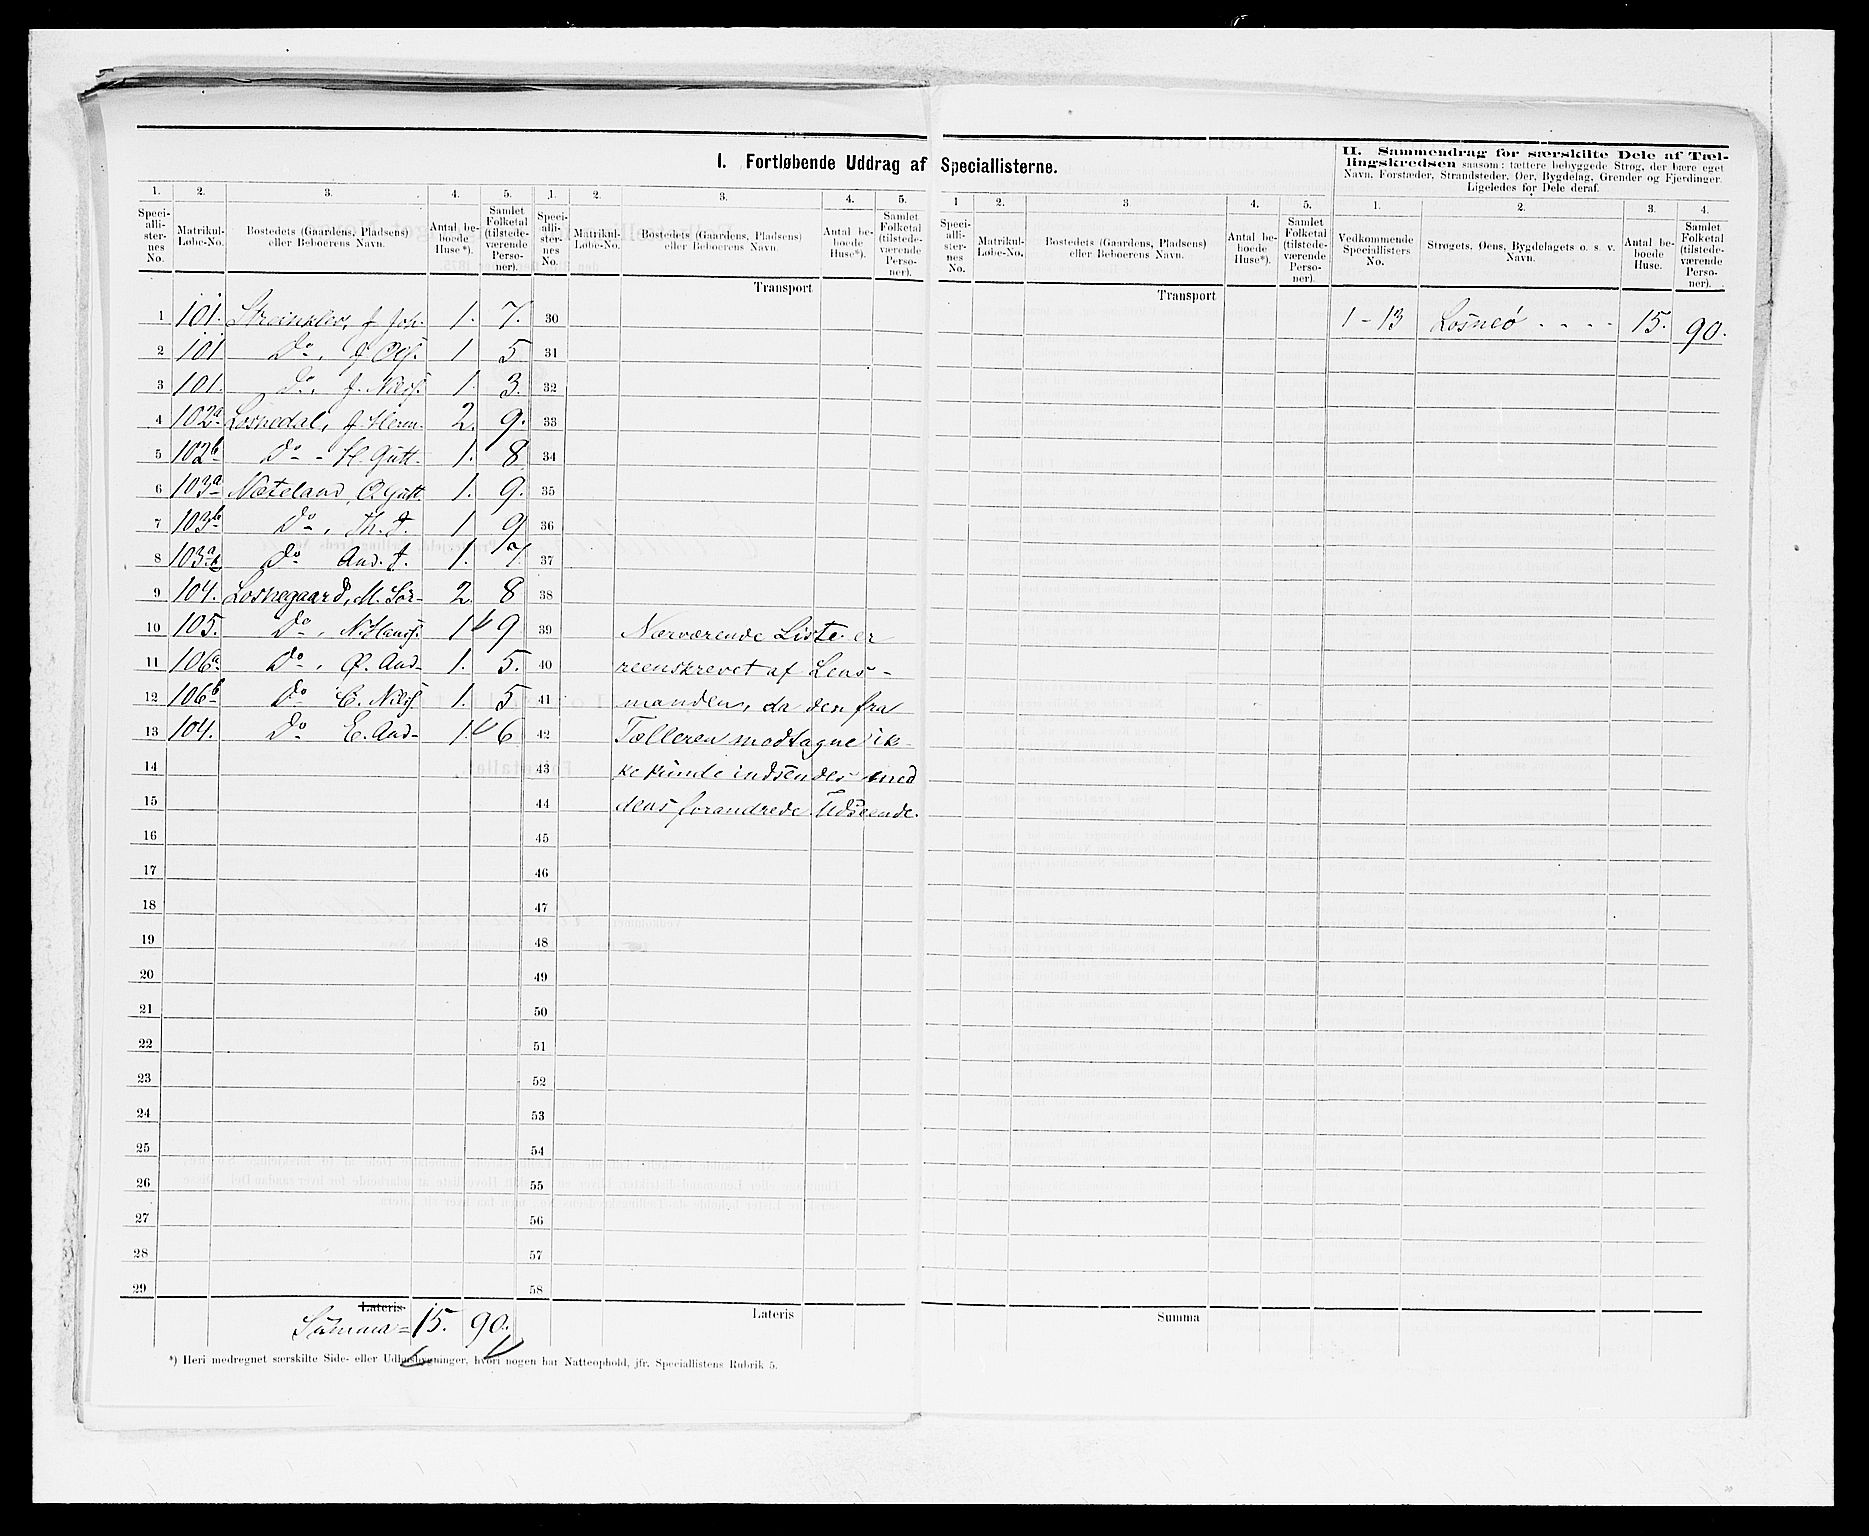 I. Fortløbende Uddrag af Speciallisterne.
II. Sammendrag for særskilte Dele af Tæl-
lingskredsen saasom: tættere bebyggede Strøg, der bære eget
Navn, Forstæder, Strandsteder, Øer, Bygdelag, Grender og Fjerdinger.
Ligeledes for Dele deraf.
1. 2. 3. 4. 5. 1. 2. 3. 4. 5. 1 2. 3. 4. 5. 1. 2. 3. 4.
Speci-
alli-
ster-
nes
No.
Matrikul-
Løbe-No.
Bostedets (Gaardens, Pladsens)
eller Beboerens Navn.
Antal be-
boede
Huse*).
Samlet
Folketal
(tilstede-
værende
Perso-
ner).
Speci-
alli-
ster-
nes
No.
Matrikul-
Løbe-No.
Bostedets (Gaardens, Pladsens)
eller Beboerens Navn.
Antal be-
boede
Huse*).
Samlet
Folketal
(tilstede-
værende
Perso-
ner).
Speci-
alli-
ster-
nes
No.
Matrikul-
Løbe-No.
Bostedets (Gaardens, Pladsens)
eller Beboerens Navn.
Antal be-
boede
Huse*).
Samlet
Folketal
(tilstede-
værende
Perso-
ner).
Vedkommende
Speciallisters
No.
Strøgets, Øens, Bygdelagets o. s. v.
Navn.
Antal be-
boede
Huse.
Samlet
Folketal
(tilstede-
værende
Perso-
ner).
Transport
Transport
1 101. J. Joh. 1. 7. 30
1-13 Losneö - - - - 15. 90.
2 101 Do, 1 5 31
3 101. Do, J. Nils. 1. 3. 32
4 102a Losnedal, J. Herm. 2. 9. 33
5 102b Do - H. Gutt. 1. 8 34
6 103a Næteland, O. Gutt. 1. 9. 35
7 103b Do, Th. J. 1 9 36
8 103a Do And. J. 1. 7. 37
9 104. Losnegaard, M. Sör- 2 8 38
10 105. Do, N. Hans. 1 9 39 Nærværende Liste er
11 106a Do, Ø. And- 1. 5. 40 reenskrevet af Lens-
12 106b Do C. Nils 1. 5 41 manden, da den fra
13 104. Do E. And- 1. 6 42 Tælleren modtagne ik-
14 43 ke kunde indsendes med
15 44 dens forandrede Udseende.
16 45
17 46
18 47
19 48
20 49
21 50
22 51
23 52
24 53
25 54
26 55
27 56
28 57
29 58
Lateris
Summa = 15. 90.
Lateris
Summa
*) Heri medregnet særskilte Side- eller Udhusbygninger, hvori nogen har Natteophold, jfr. Speciallistens Rubrik 5.